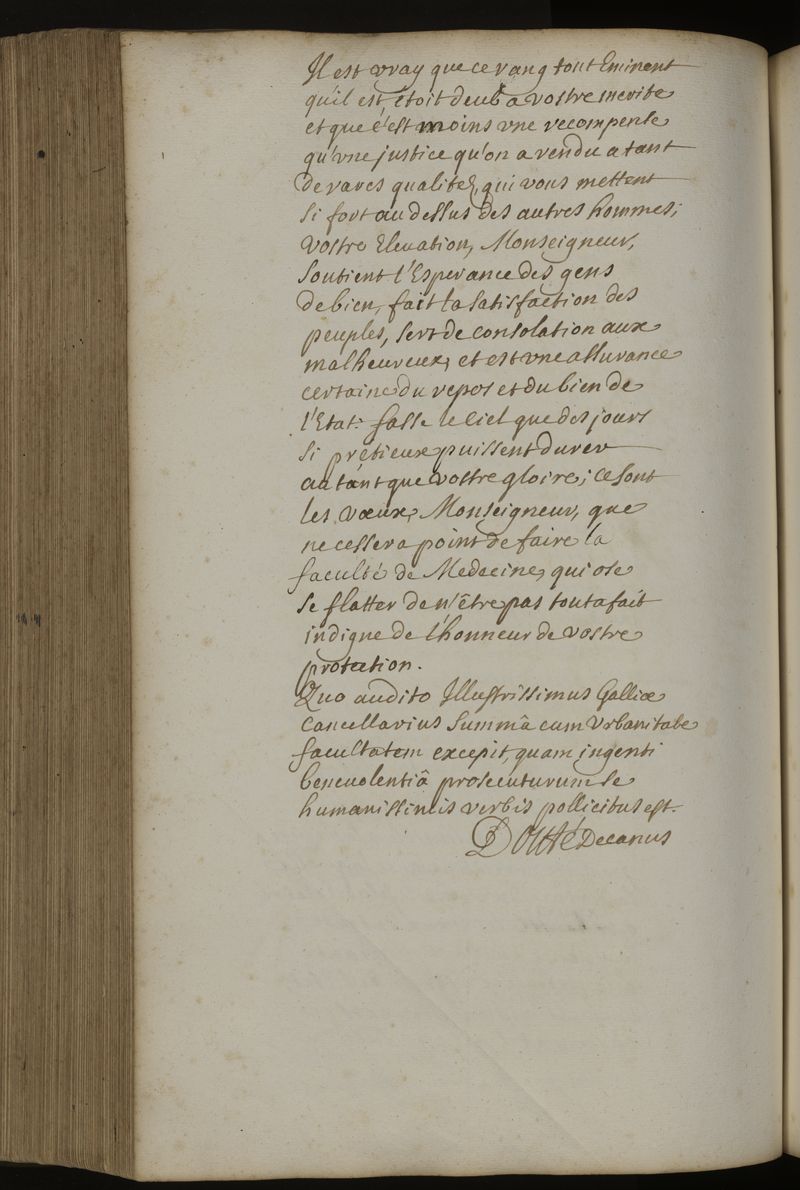 Il est vray que ce rang tout Eminent
qu'il est étoit deub a vostre merite
et que c'est moins vne recompense
qu'vne justice qu'on a rendu a tant
de rares qualitez, qui vous mettent
si fort au dessus des autres hommes;
Vostre Elevation, Monseigneur,
soutient l'Esperance des gens
de bien, fait la satisfaction des
peuples, sert de consolation aux
malheureux, et est vne assurance
certaine du repos et du bien de
l'Etat. fasse le Ciel que des jours
si prétieux puissent durer
autant que vostre gloire; ce sont
les voeux, Monseigneur, que
ne cessera point de faire la
faculté de Medecine, qui ose
se flatter de n'être pas toutafait
indigne de l'honneur de vostre
protection.
Quo audito Illustrissimus Galliæ
Cancellarius summâ cum Vrbanitate
facultatem excepit, quam ingenti
beneuolentiâ prosecuturum se
humanissimis verbis pollicitus est.
Douté Decanus